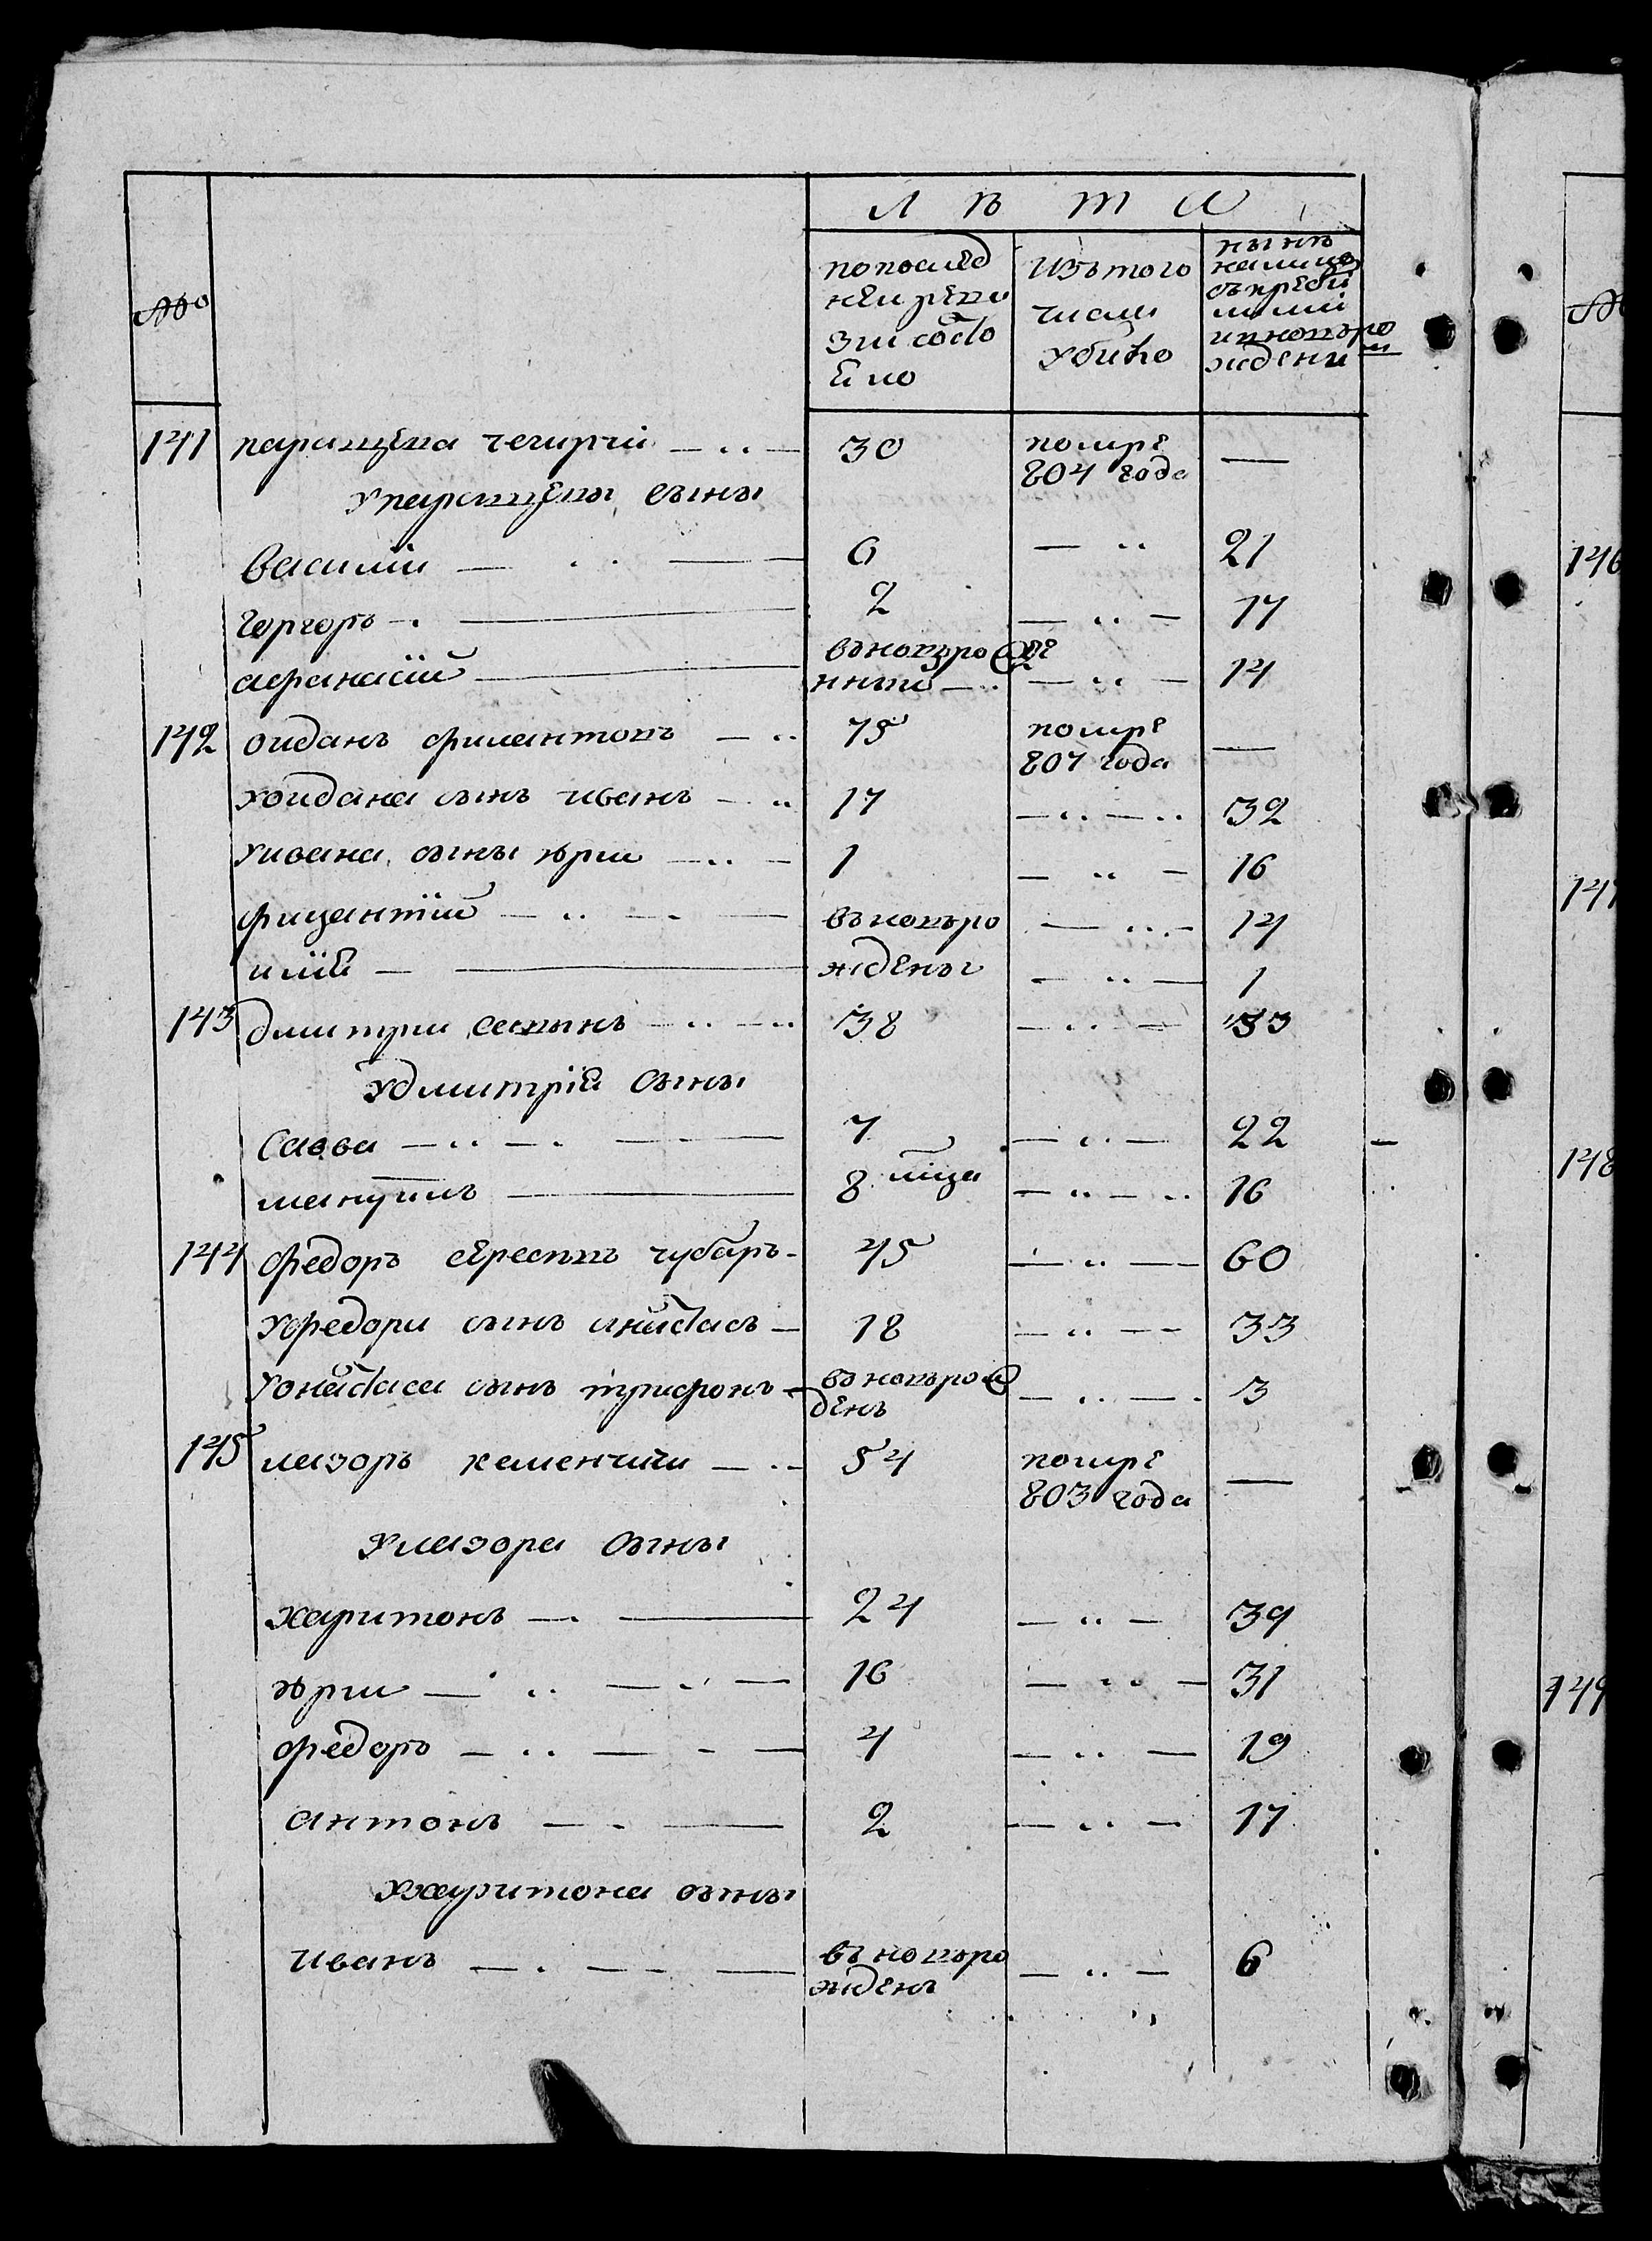 Л Ѣ Т А
№
по послѣд
ней реви
зіи состо
яло
изъ того
числа
убыло
нынѣ
на лицо
съ прибы
лыми
и вноворо
ждены
ми
141 параскева чегирчи — .. — 30 помре 804 года —
у параскевы сыны
василій — .. — 6 — .. 21
горгоръ — . — 2 — .. — 17
афанасій — вновьрожде
нные — .. — .. — 14
142 ойданъ филантовъ — .. 75 помре 807 года —
у ойдана сынъ иванъ — .. 17 — .. — .. 32
у ивана сыны юрии — .. — 1 — .. — 16
фицантій — .. — . — вновьро — ... - 14
илій — — ждены — .. — 1
143 дмитри савынъ — .. — .. 38 — .. — 53
у дмитрія сыны
савва — .. — . — 7 — .. — 22
мануилъ — 8 мца — .. — .. 16
144 федоръ евреевъ чубаръ - 45 — .. — 60
у федора сынъ анастасъ — 18 — .. — 33
у онастаса сынъ трифонъ — вновьрож
денъ — .. — . 3
145 лазоръ каменчичи — .. 54 помре 803 года —
у лазора сыны
харитонъ — . — 24 — .. — 39
юрии — .. — .. — 16 — .. — 31
федоръ — .. — - — 4 — .. — 19
антонъ — . — 2 — .. — 17
у харитона сыны
иванъ — . — - — вновьро
жденъ — .. — 6
146
147
148
149